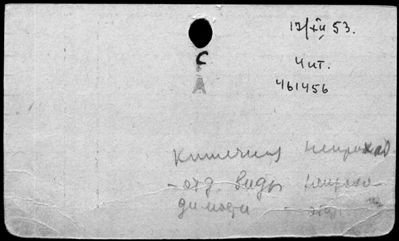 17/XII 53.
С
Чит.
А
461456
Кишечная непроход
- отд. виды непрохо
димости